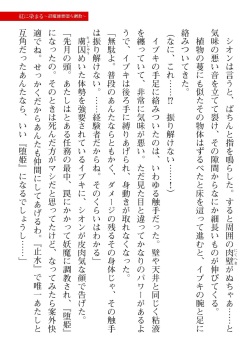 シオンは言うと、ぱちんと指を鳴らした。すると周囲の肉壁がぬちゃぁ……と
気味の悪い音を立てて裂け、その隙間からなにか細長いものが伸びてくる。
植物の蔓にも似たその物体はずるべたと床を這って進むと、イブキの腕と足に
絡みついてきた。
(なに、これ……!? 振り解けない……!)
イブキの手足に絡みついたのは、いわゆる触手だった。壁や天井と同じく粘液
を纏っていて、非常に気味が悪い。ただ見た目と違ってかなりのパワーがあるよ
うで、イブキは後ろ手に縛りあげられ、身動きが取れなくなった。
「無駄よ。普段のあんたならともかく、ダメージの残るその身体じゃ、その触手
は振り解けない……経験者だからね、わかるわ」
虜囚めいた体勢を強要されているイブキに、シオンが皮肉気な顔で告げた。
「先月の頭、あたしはとある務の最中、罠にかかって妖魔に調教され、『堕姫』
になったの。そのときは死んだ方がマシだと思ってたけど、なってみたら案外快
適でね。せっかくだからあんたも仲間にしてあげるわ。『止水』で唯一あたしと
互角だったあんたなら、いい『堕姫』になるでしょうし……」